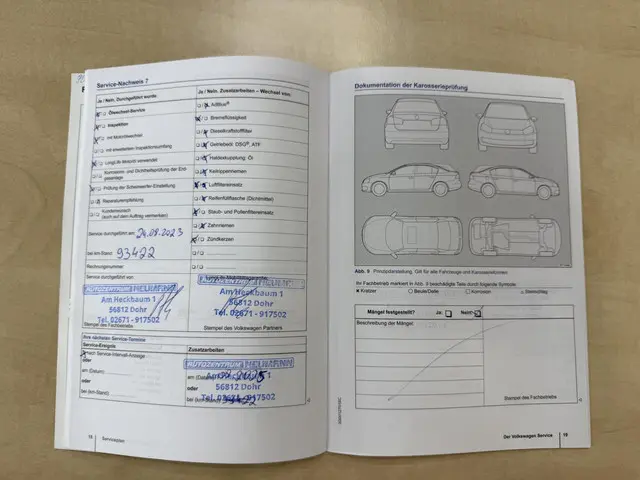 Service-Nachweis 7
Ja / Nein. Durchgeführt wurde:
Ölwechsel-Service
Inspektion
mit Motorölwechsel
mit erweitertem Inspektionsumfang
LongLife-Motoröl verwendet
Korrosions- und Dichtheitsprüfung der Erdgasanlage
Prüfung der Scheinwerfer-Einstellung
Reparaturempfehlung
Kundenwunsch
(auch auf dem Auftrag vermerken)
Service durchgeführt am: 24.08.2023
bei km-Stand: 93422
Rechnungsnummer:
Service durchgeführt von:
AUTOZENTRUM HEUMANN
Am Heckbaum 1
56812 Dohr
Tel. 02671 - 917502
Stempel des Fachbetriebs
Ja / Nein. Zusatzarbeiten – Wechsel von:
AdBlue®
Bremsflüssigkeit
Dieselkraftstofffilter
Getriebeöl: DSG®, ATF
Haldexkupplung: Öl
Keilrippenriemen
Luftfiltereinsatz
Reifenfüllflasche (Dichtmittel)
Staub- und Pollenfiltereinsatz
Zahnriemen
Zündkerzen
Am Heckbaum 1
56812 Dohr
Tel. 02671 - 917502
Stempel des Volkswagen Partners
Ihre nächsten Service-Termine
Service-Ereignis:
nach Service-Intervall-Anzeige
oder
am (Datum):
oder
bei (km-Stand):
Zusatzarbeiten
AUTOZENTRUM HEUMANN
am (Datum)
Am Heckbaum 1
oder
56812 Dohr
bei (km-Stand)
Tel. 02671 - 917502
18 Serviceplan
Dokumentation der Karosserieprüfung
Abb. 9 Prinzipdarstellung. Gilt für alle Fahrzeuge und Karosserieformen
Ihr Fachbetrieb markiert in Abb. 9 beschädigte Teile durch folgende Symbole:
Kratzer
Beule/Delle
Korrosion
Steinschlag
Mängel festgestellt? Ja: Nein:
Beschreibung der Mängel:
Stempel des Fachbetriebs
Der Volkswagen Service 19